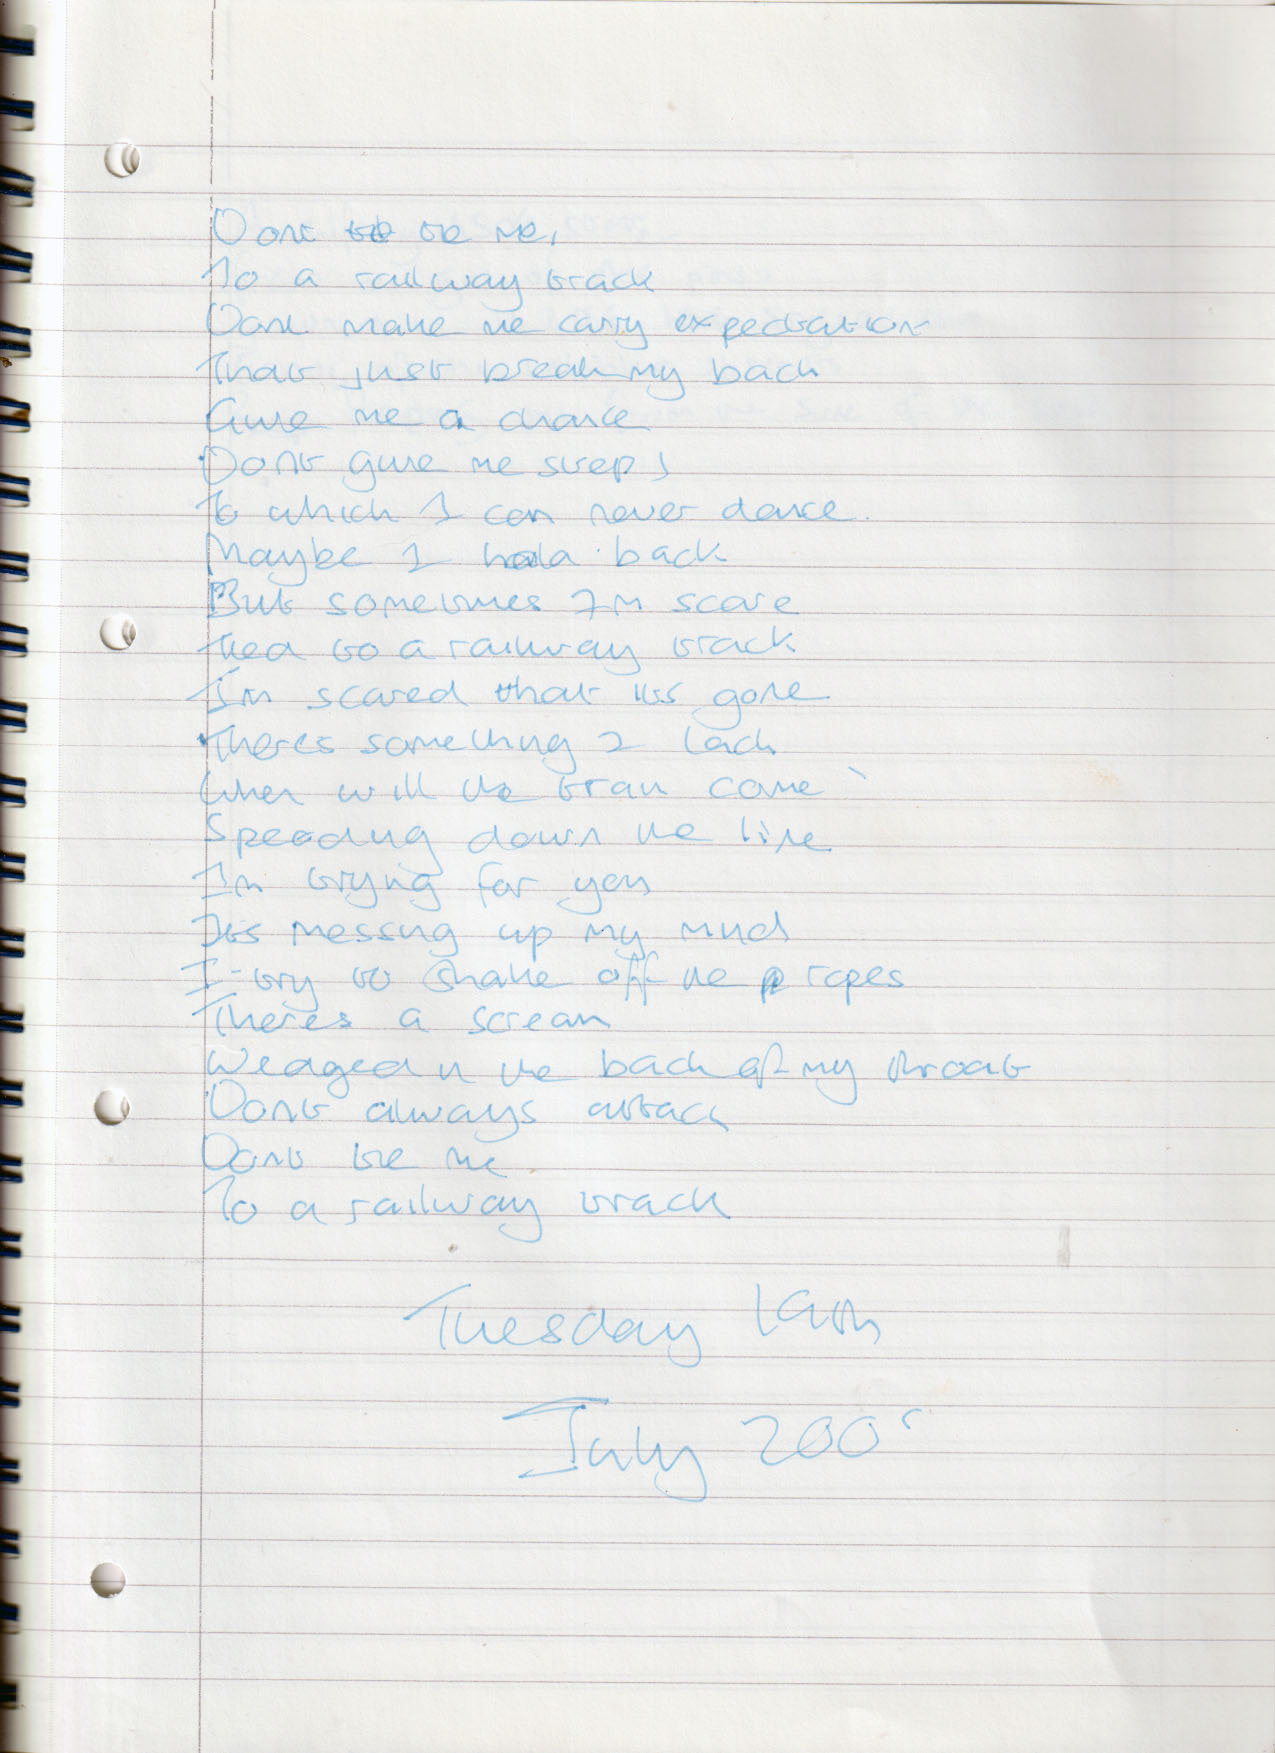 Dont tie me,
To a railway track
Dont make me carry expectation
That just break my back
Give me a chance
Dont give me steps
To which I can never dance.
Maybe I hold back
But sometimes Im scare
Tied to a railway track
I'm scared that its gone
Theres something I lack
When will the train come
Speeding down the line
Im trying for you
Its messing up my mind
I try to shake off the ropes
Theres a scream
Wedged in the back of my throat
Dont always attack
Dont tie me
To a railway track
Tuesday
July